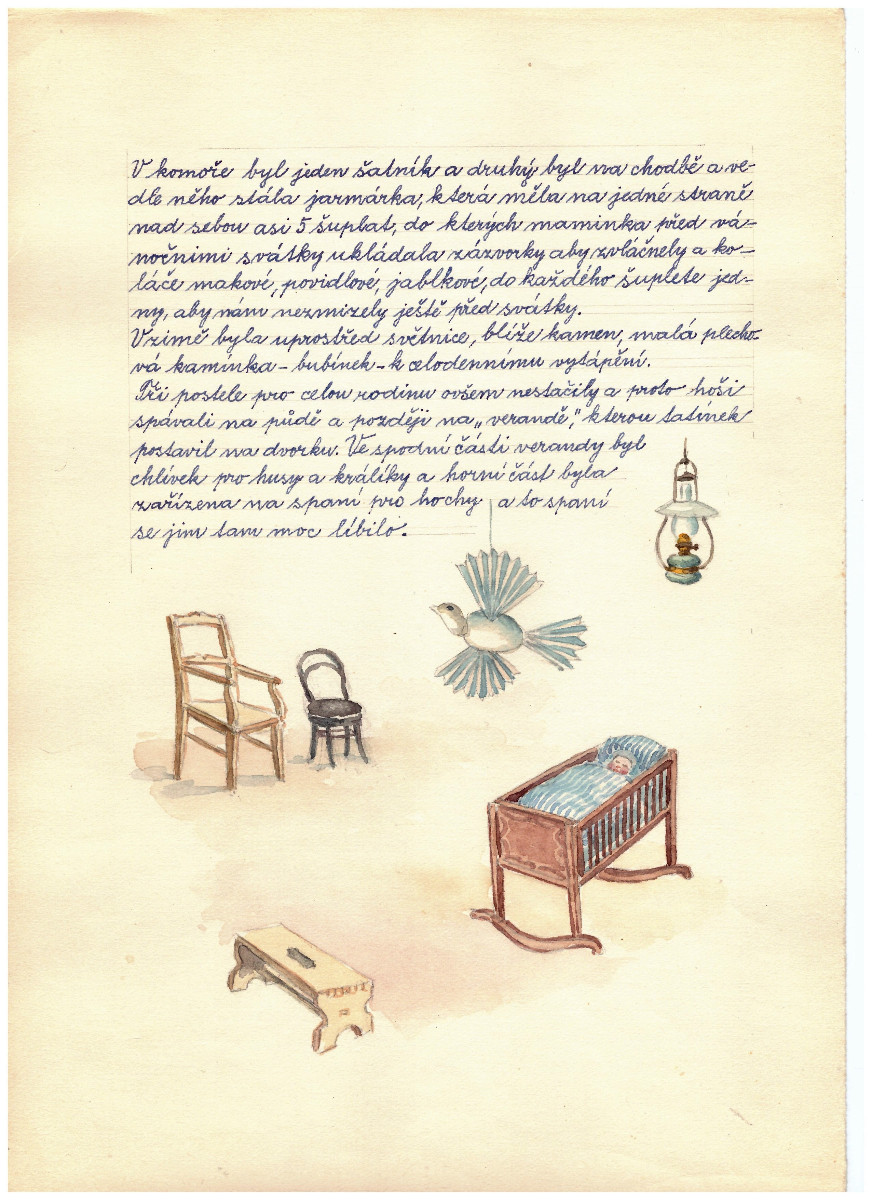 V komoře byl jeden šatník a druhý byl na chodbě a ve-
dle něho stála jarmárka, která měla na jedné straně
nad sebou asi 5 šuplat, do kterých maminka před vá-
nočnimi svátky ukládala zázvorky aby zvláčněly a ko-
láče makové, povidlové, jablkové, do každého šuplete jed-
ny, aby nám nezmizely ještě před svátky.
V zimě byla uprostřed světnice, blíže kamen, malá plecho-
vá kamínka - bubínek - k celodennímu vytápění.
Tři postele pro celou rodinu ovšem nestačily a proto hoši
spávali na půdě a později na „verandě", kterou tatínek
postavil na dvorku. Ve spodní části verandy byl
chlívek pro husy a králíky a horní část byla
zařízena na spaní pro hochy a to spaní
se jim tam moc líbilo.